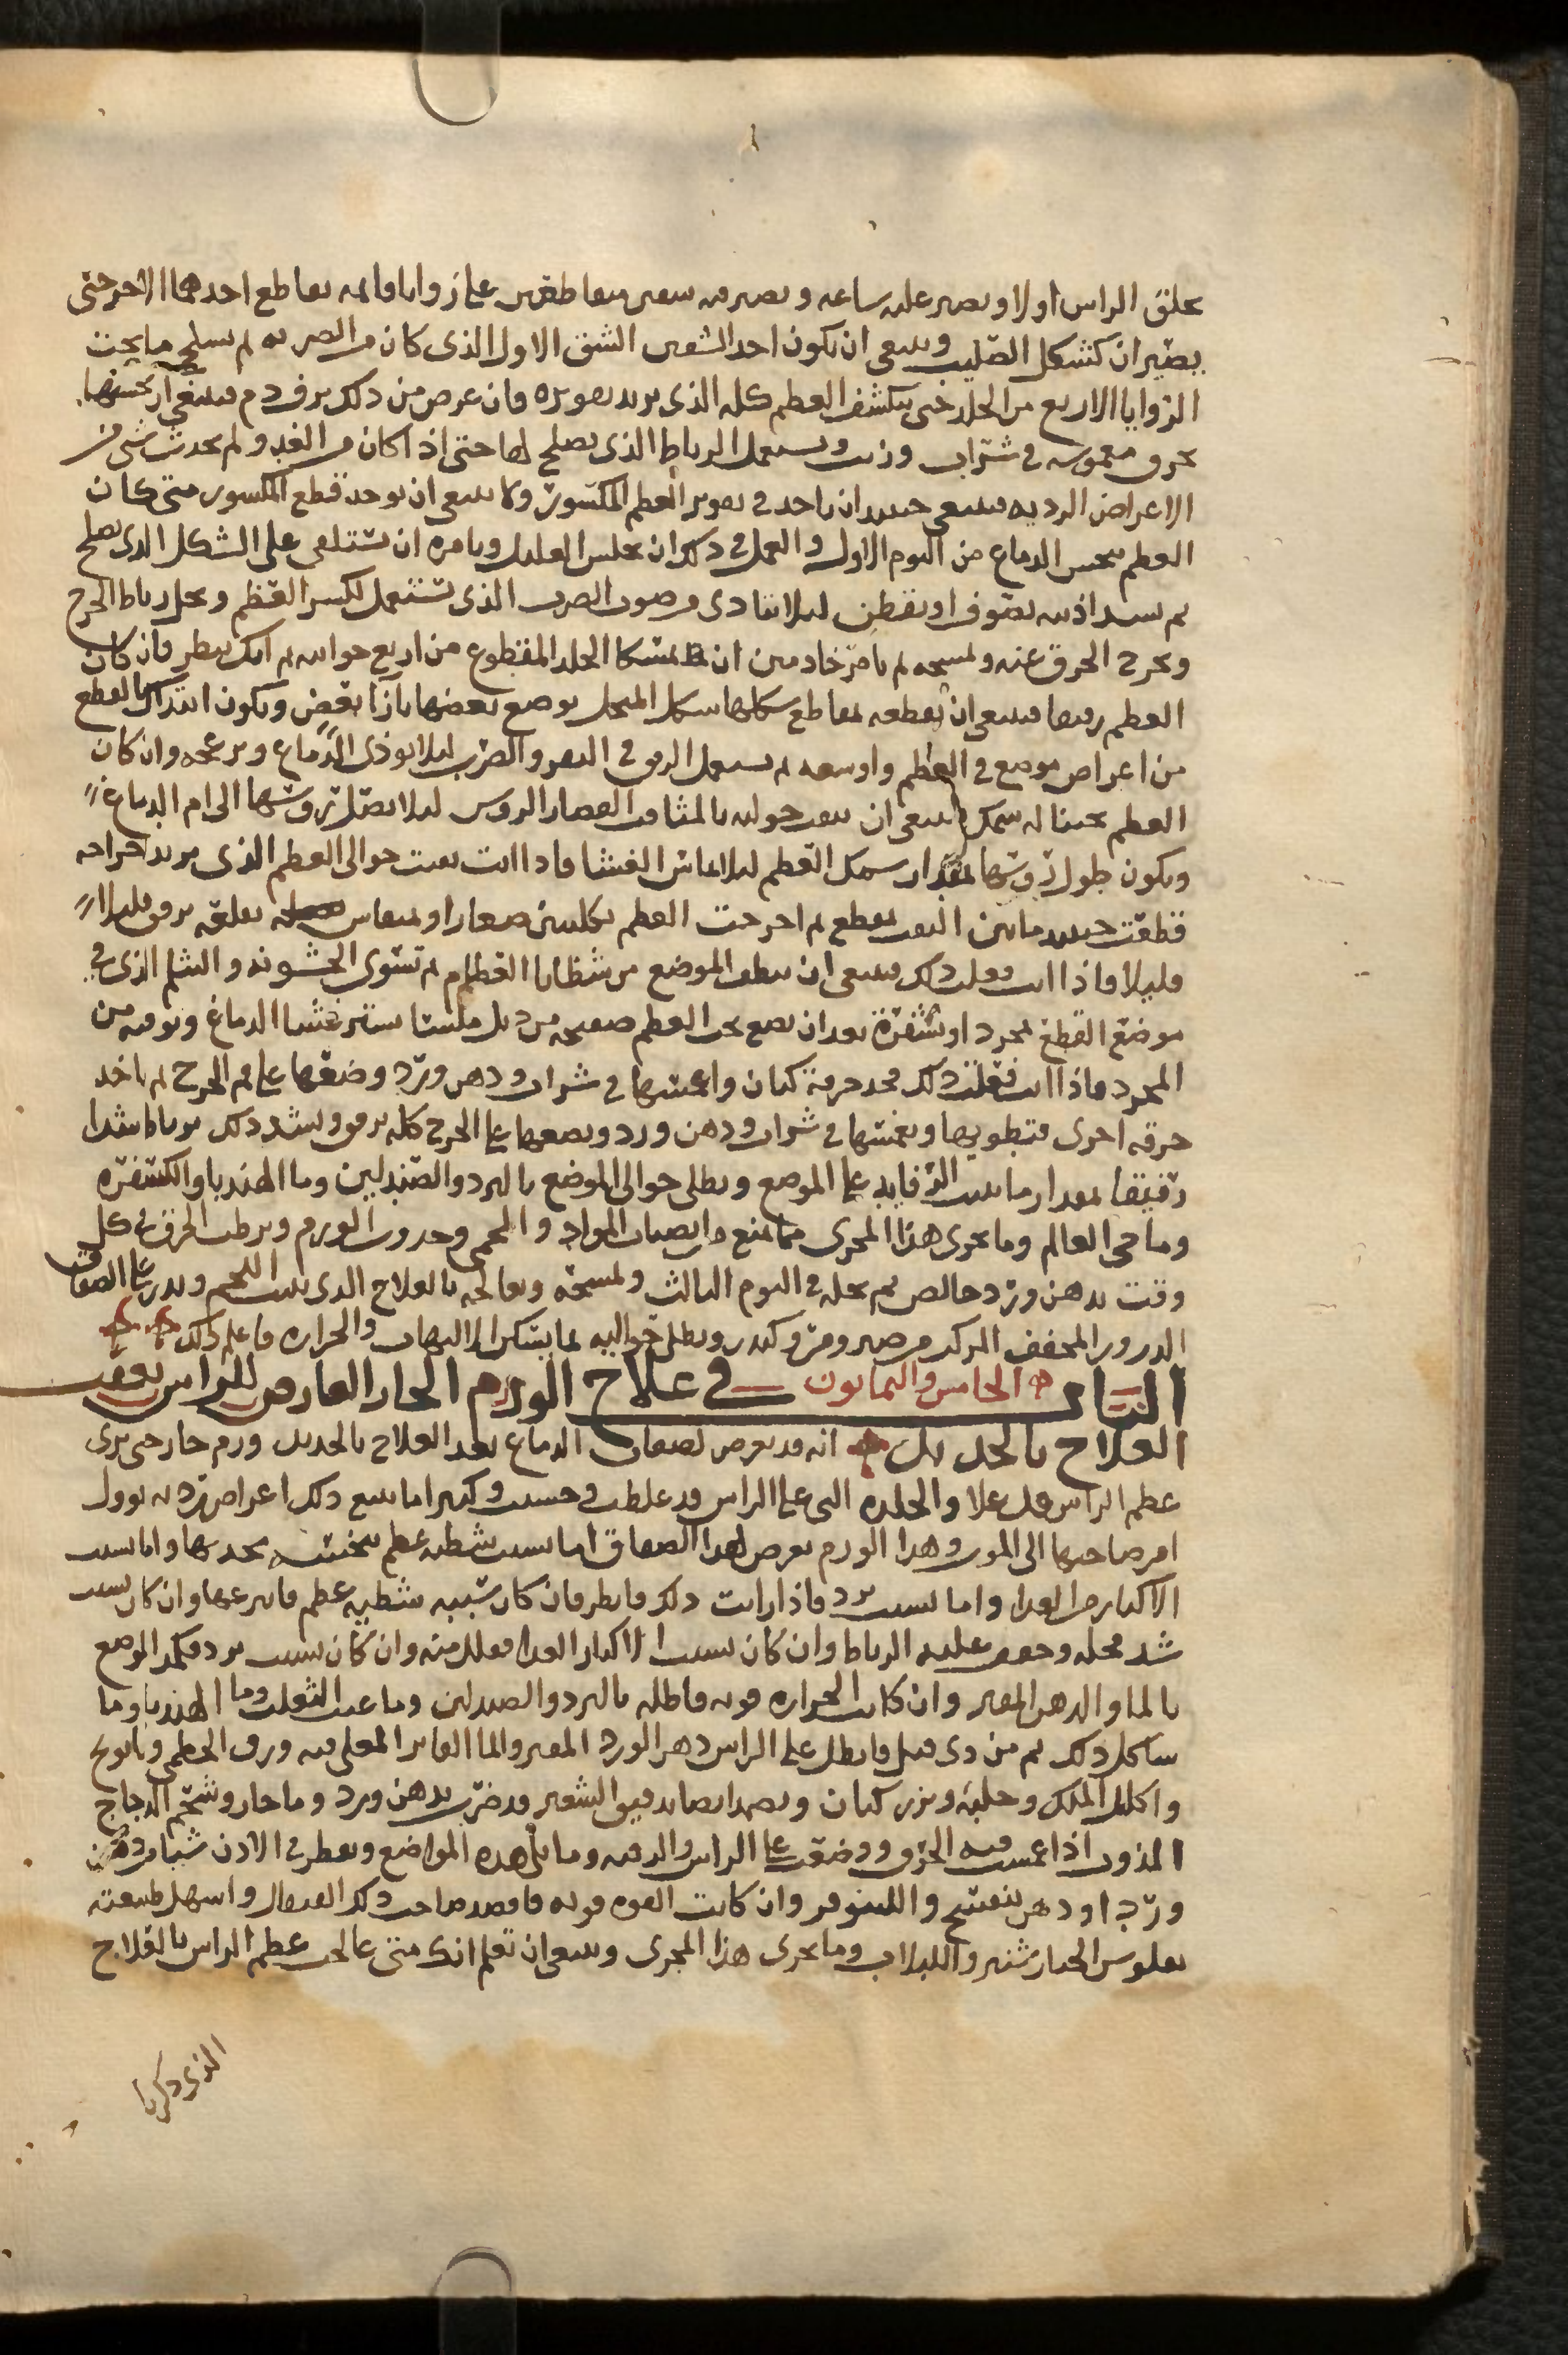 يحلق الراس اولا ويصير عليه ساعه ويصير فيه شقين متقاطعين على زوايا قايمه يقاطع احدهما الاخر حتى
يصيران كشكل الصليب وينبغي ان يكون احد الشقين الشق الاول الذى كان من الضربه ثم تسلخ ما تحت
الزوايا الاربع من الجلد حتى ينكشف العظم كله الذى يريد تقويره فان عرض من ذلك نزف دم فينبغي ان تحشيها
بخرق مغموسه في شراب وزيت ويستعمل الرباط الذى يصلح لها حتى اذا كان من الغد ولم يحدث شي من
الاعراض الرديه فينبغي حينئذ ان ياخذ في تقوير العظم المكسور ولا ينبغي ان يوخذ قطع المكسور متى كان
العظم ينخس الدماغ من اليوم الاول والعمل في ذلك ان يجلس العليل ويامره ان يستلقى على الشكل الذى يصلح
ثم يسد اذنيه بصوف او بقطن ليلا يتاذى من صوت الضرب الذى تستعمل لكسر العظم ويحل رباط الجرح
ويخرج الخرق عنه ويمسحه ثم يامر خادمين ان يمسكا الجلد المقطوع من اربع جوانبه ثم انك ينظر فان كان
العظم رقيقا فينبغي ان تقطعه بمقاطع شكلها شكل المنجل يوضع بعضها بازا بعض ويكون ابتداك بالقطع
من اعرض موضع في العظم واوسعه ثم يستعمل الرفق في النقر والضرب ليلا يوذى الدماغ ويزعجه وان كان
العظم سخينا له سمك فينبغي ان يثقب حوليه بالمثاقب القصار الروس ليلا يصل روسها الى ام الدماغ
ويكون طول روسها بمقدار سمك العظم ليلا يماس الغشا فاذا انت ثقبت حوالى العظم الذى يريد اخراجه
قطعت حينئذ ما بين الثقب بمقطع ثم اخرجت العظم بكلبتين صغارا او بمنقاش يعلقه برفق قليلا
قليلا فاذا انت فعلت ذلك فينبغي ان ينظف الموضع من شظايا العظام ثم تسوى الخشونه والثلم الذى في
موضع القطع بمجرد او بشفره بعد ان يضع تحت العظم صفيحه من حديد ملسا يستر غشا الدماغ ويوقيه من
المجرد فاذا انت فعلت ذلك فخذ خرقة كتان واغمسها في شراب ودهن ورد وضعها على فم الجرح ثم ياخذ
خرقه اخرى فتطويها ويغمسها في شراب ودهن ورد ويضعها على الجرح كله برفق ويشد ذلك برباط شدا
رقيقا بمقدار ما يثبت الرفايد على الموضع ويطلى حوالى الموضع بالورد والصندلين وما الهندبا والكسفره
وما حى العالم وما يجرى هذا المجرى مما يمنع من انصباب المواد والحمى وحدوث الورم ويرطب الخرق في كل
وقت بدهن ورد خالص ثم يحله في اليوم الثالث ويمسحه ويعالجه بالعلاج الذى ينبت اللحم ويذر على الصفاق
الذرور المجفف المركب من صبر ومر وكندر ويطلى حواليه بما يسكن الالتهاب والحراره فاعلم ذلك
الباب الخامس والثمانون في علاج الورم الحار العارض للراس بعقب
العلاج بالحديد انه قد يعرض لصفاق الدماغ بعد العلاج بالحديد ورم حار حتى يرى
عظم الراس قد علا والجلده التى على الراس قد غلظت وحسيت وكثيرا ما يتبع ذلك اعراض رديه يوول
امر صاحبها الى الموت وهذا الورم يعرض لهذا الصفاق اما بسبب شظيه عظم ينخسه بحدها واما بسبب
الاكثار من الغذا واما بسبب برد فاذا رايت ذلك فانظر فان كان سببه شظيه عظم فانزعها وان كان بسبب
شد فحله وخفف عليه الرباط وان كان بسبب الاكثار الغذا فقلل منه وان كان بسبب برد فكمد الموضع
بالما والدهن المفتر وان كانت الحراره قويه فاطله بالورد والصندلين وما عنب الثعلب وما الهندبا وما
شاكل ذلك ثم من ذى قبل فانطل على الراس دهن الورد المفتر والما الفاتر المغلى فيه ورق الخطمى وبابونج
واكليل الملك وحلبه وبزر كتان ويضمد ايضا بدقيق الشعير قد ضرب بدهن ورد وما حار وشحم الدجاج
المذوب اذا غمست فيه الخرق ووضعت على الراس والرقبه وما يلى هذه المواضع ويقطر في الاذن شيا من دهن
ورد او دهن بنفسج والنينوفر وان كانت القوه قويه فافصد صاحب ذلك القيفال واسهل طبيعته
بفلوس الخيارشنبر واللبلاب وما يجرى هذا المجرى وينبغي ان تعلم انك متى عالجت عظم الراس بالعلاج
الذى ذكرنا